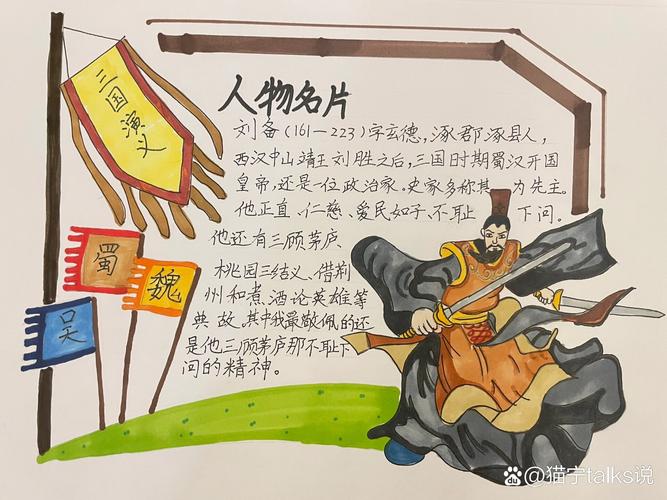 三国演义
人物名片
刘备(161—223)字玄德,涿郡涿县人,
西汉中山靖王刘胜之后,三国时期蜀汉开国
皇帝,还是一位政治家.史家多称其为先主。
他正直、仁慈、爱民如子、不耻下问。
他还有三顾茅庐、
桃园三结义、借荆
州和煮酒论英雄等
典故,其中我最敬佩的还
是他三顾茅庐那不耻下
问的精神。
蜀
魏
吴
Bai du @猫宁talks说